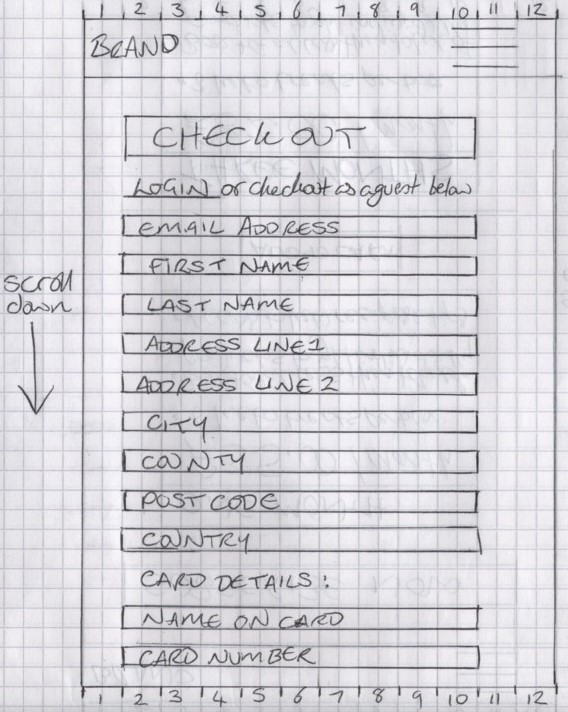 1 2 3 4 5 6 7 8 9 10 11 12
BRAND
CHECKOUT
LOGIN or checkout as a guest below
EMAIL ADDRESS
FIRST NAME
scroll
down
LAST NAME
ADDRESS LINE 1
ADDRESS LINE 2
CITY
COUNTY
POST CODE
COUNTRY
CARD DETAILS:
NAME ON CARD
CARD NUMBER
1 2 3 4 5 6 7 8 9 10 11 12